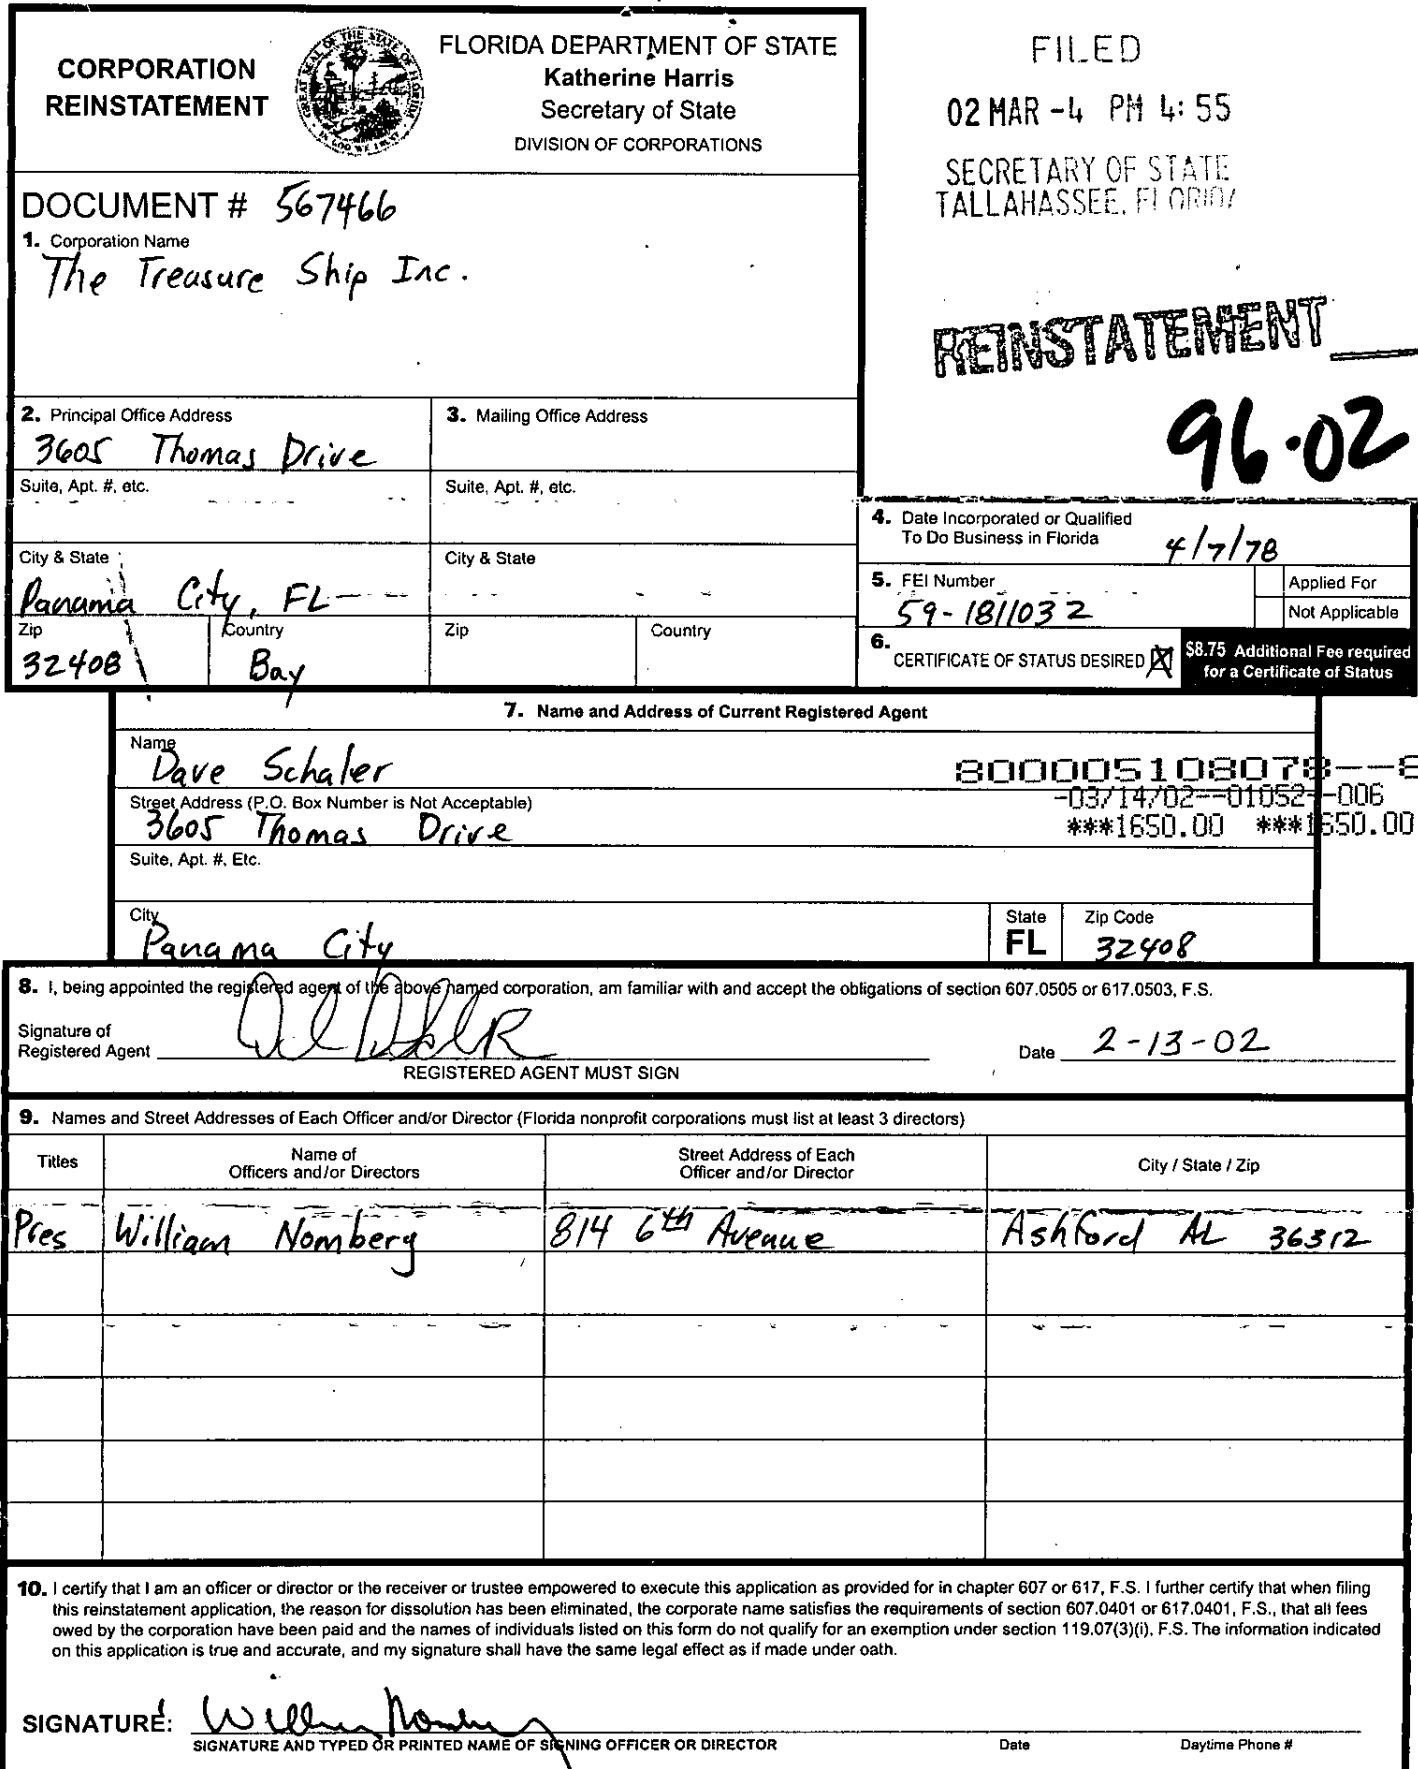 CORPORATION
REINSTATEMENT
FLORIDA DEPARTMENT OF STATE
Katherine Harris
Secretary of State
DIVISION OF CORPORATIONS
FILED
02 MAR -4 PM 4:55
SECRETARY OF STATE
TALLAHASSEE, FLORIDA
DOCUMENT # 567466
1. Corporation Name
The Treasure Ship Inc.
REINSTATEMENT
96-02
2. Principal Office Address
3605 Thomas Drive
3. Mailing Office Address
Suite, Apt. #, etc.
Suite, Apt. #, etc.
City & State
Panama City, FL
City & State
Zip
32408
Country
Bay
Zip
Country
4. Date Incorporated or Qualified
To Do Business in Florida
4/7/78
5. FEI Number
59-1811032
Applied For
Not Applicable
6.
CERTIFICATE OF STATUS DESIRED X
$8.75 Additional Fee required
for a Certificate of Status
7. Name and Address of Current Registered Agent
Name
Dave Schaler
800005108078--8
-03/14/02--01052--006
***1650.00 ***1650.00
Street Address (P.O. Box Number is Not Acceptable)
3605 Thomas Drive
Suite, Apt. #, Etc.
City
Panama City
State
FL
Zip Code
32408
8. I, being appointed the registered agent of the above named corporation, am familiar with and accept the obligations of section 607.0505 or 617.0503, F.S.
Signature of
Registered Agent
Date 2-13-02
REGISTERED AGENT MUST SIGN
9. Names and Street Addresses of Each Officer and/or Director (Florida nonprofit corporations must list at least 3 directors)
Titles
Name of
Officers and/or Directors
Street Address of Each
Officer and/or Director
City / State / Zip
Pres William Nomberg 814 6th Avenue Ashford AL 36312
10. I certify that I am an officer or director or the receiver or trustee empowered to execute this application as provided for in chapter 607 or 617, F.S. I further certify that when filing
this reinstatement application, the reason for dissolution has been eliminated, the corporate name satisfies the requirements of section 607.0401 or 617.0401, F.S., that all fees
owed by the corporation have been paid and the names of individuals listed on this form do not qualify for an exemption under section 119.07(3)(i), F.S. The information indicated
on this application is true and accurate, and my signature shall have the same legal effect as if made under oath.
SIGNATURE: William Nomberg
SIGNATURE AND TYPED OR PRINTED NAME OF SIGNING OFFICER OR DIRECTOR
Date
Daytime Phone #